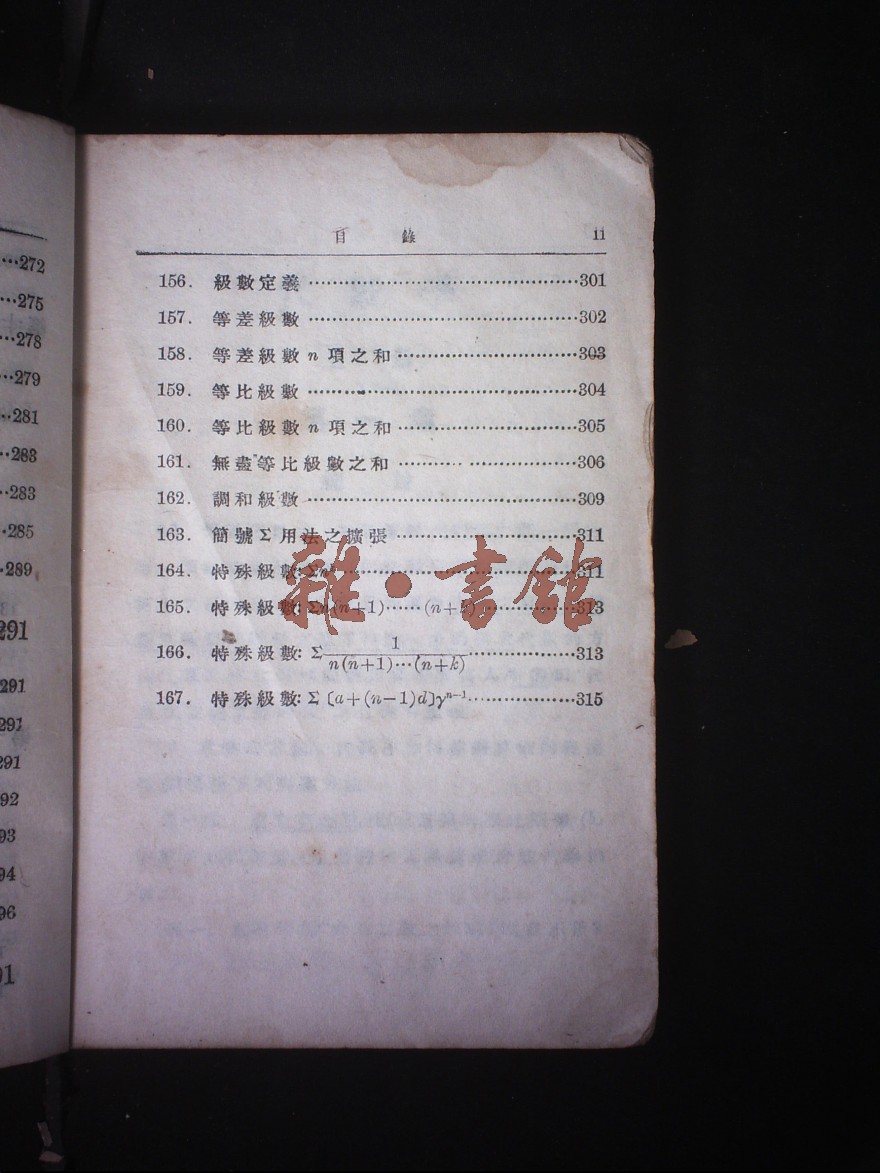 目 錄 11
…272
…275
…278
…279
…281
…288
…283
…285
…289
291
291
291
291
92
93
94
96
91
156. 級數定義 …………………………301
157. 等差級數 …………………………302
158. 等差級數 n 項之和 …………………303
159. 等比級數 …………………………304
160. 等比級數 n 項之和 …………………305
161. 無盡等比級數之和 …………………306
162. 調和級數 …………………………309
163. 簡號 Σ 用法之擴張 …………………311
164. 特殊級數: …………………………311
165. 特殊級數: Σn(n+1)……(n+ …………313
166. 特殊級數: Σ 1/n(n+1)…(n+k) …………313
167. 特殊級數: Σ〔a+(n−1)d〕γⁿ⁻¹ …………315
雜·書館